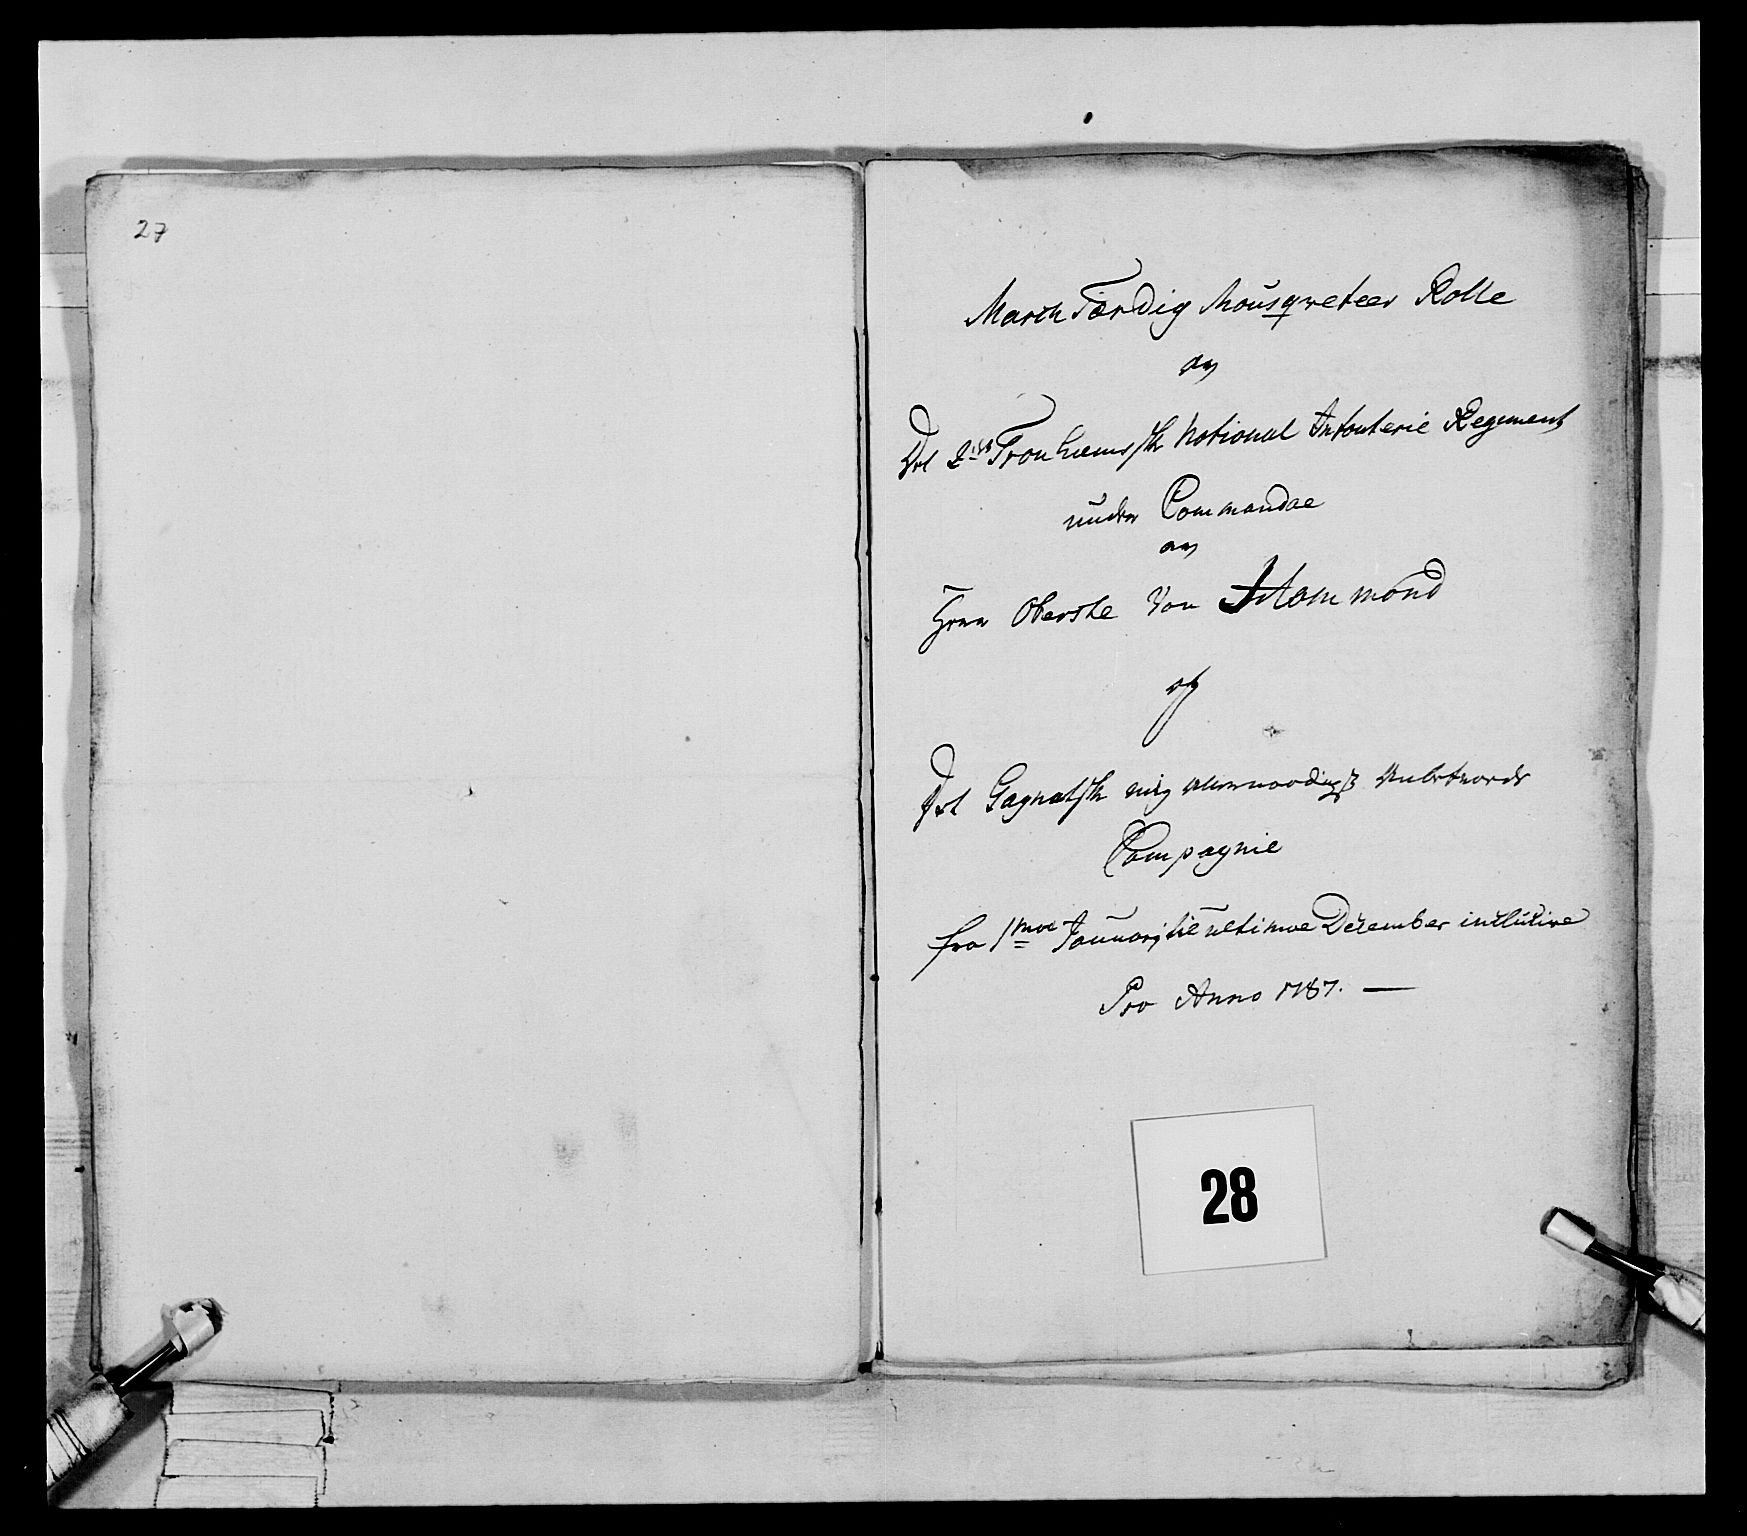 27
March Færdig Mousqveteer Rolle
av
Det 2det Tronhiemske National Infanterie Regiment
under Commandoe
av
Herr Oberste Von Hammond
af
Det Gagnatske mig allernaadigst Anbetroede
Compagnie
fra 1moe Januarj til ultimoe December inclusive
Pro Anno 1787. —
28